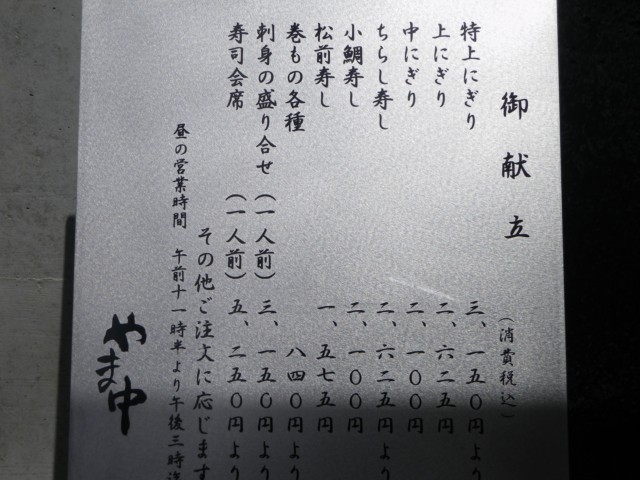 御献立
(消費税込)
特上にぎり 三、一五〇円より
上にぎり 二、六二五円
中にぎり 二、一〇〇円
ちらし寿し 二、六二五円より
小鯛寿し 二、一〇〇円
松前寿し 一、五七五円
巻もの各種 八四〇円より
刺身の盛り合せ(一人前) 三、一五〇円より
寿司会席(一人前) 五、二五〇円より
その他ご注文に応じます
昼の営業時間 午前十一時半より午後三時迄
やま中